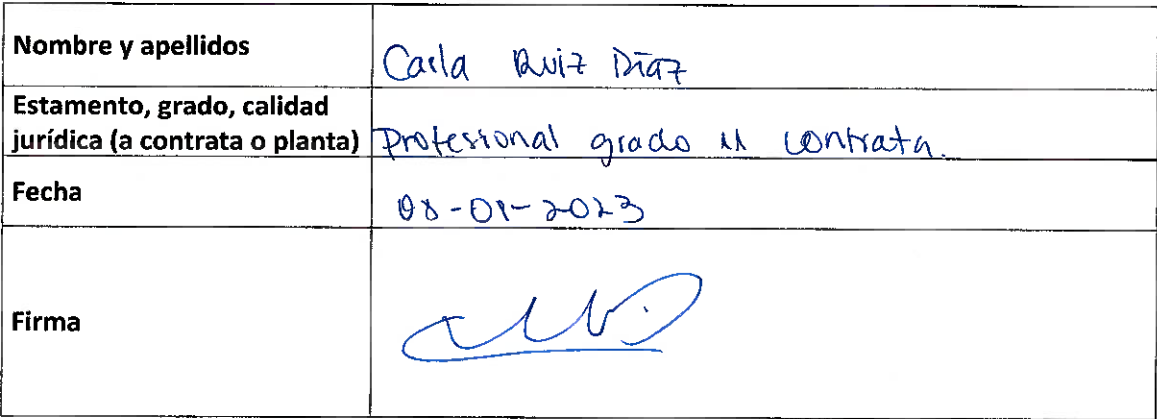 Nombre y apellidos
Carla Ruiz Díaz
Estamento, grado, calidad
jurídica (a contrata o planta)
Profesional grado 11 contrata.
Fecha
08-01-2023
Firma